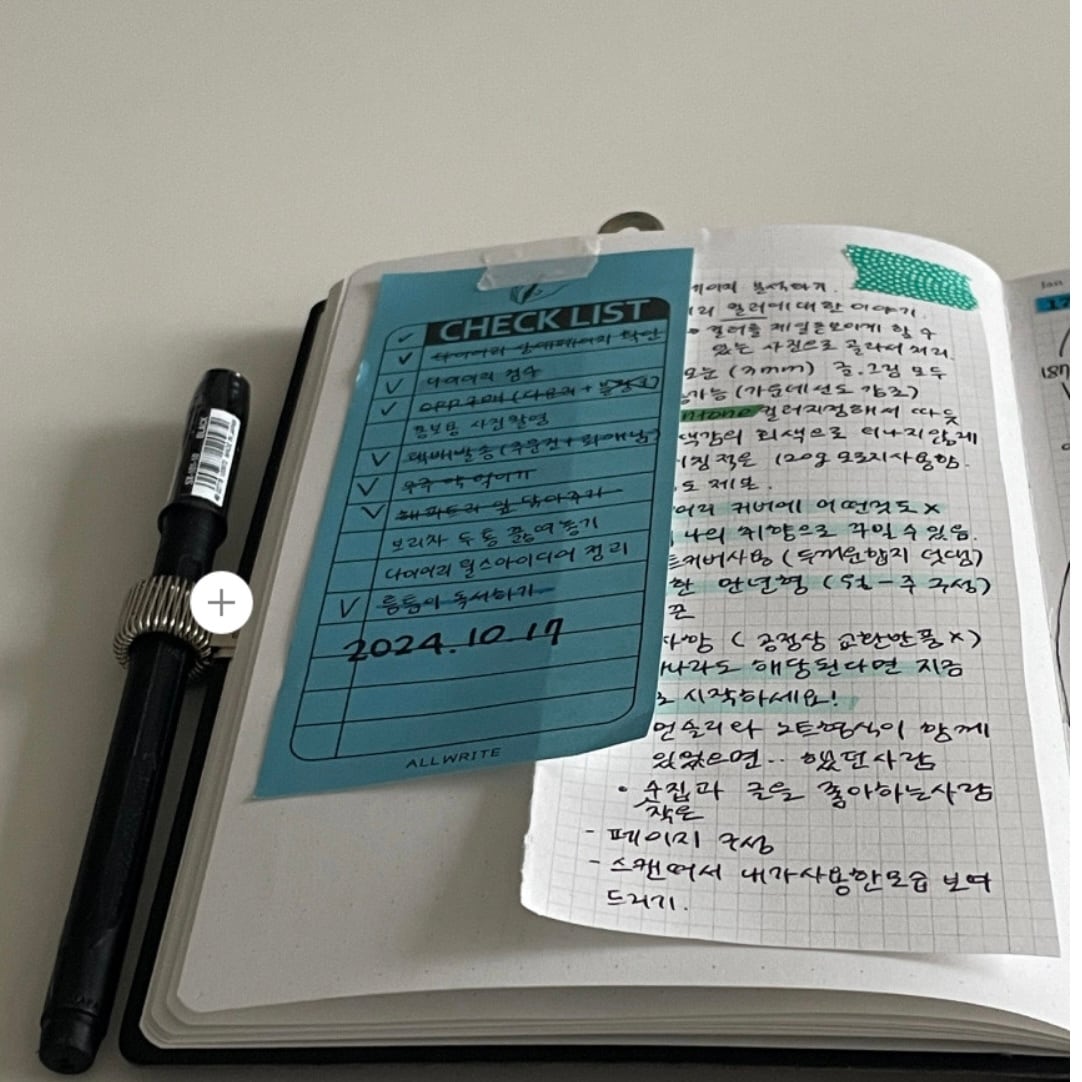 CHECK LIST
다이어리 상세페이지 확인
다이어리 검수
OPP구매 (다용리 + 볼
홍보용 사진촬영
택배발송 (주문건 +
우주 약 먹이기
해피트리 잎 닦아주기
보리차 두통 끓여놓기
다이어리 필스아이디어 정리
틈틈이 독서하기
2024.10.17
ALLWRITE
BLACK
페이지 분석하기.
컬러에 대한 이야기.
컬러를 제일 돋보이게 할 수
있는 사진으로 골라서 처리.
모눈 (3mm) 글.그림 모두
가능 (가운데선도 강조)
컬러지정해서 따듯
색감의 회색으로 튀지않게
적은 120g 모조지사용함.
도 제본.
커버에 어떤것도 x
나의 취향으로 꾸밀 수 있음.
커버사용 (두꺼운합지 덧댐)
한 만년형 (월-주 구성)
끈
사양 (공정상 교환반품 x)
하나라도 해당된다면 지금
로 시작하세요!
먼슬리와 노트형식이 함께
있었으면.. 했던사람
• 수집과 글을 좋아하는사람
작은
- 페이지 구성
- 스캔떠서 내가사용한모습 보여
드리기.
Jan
17
187